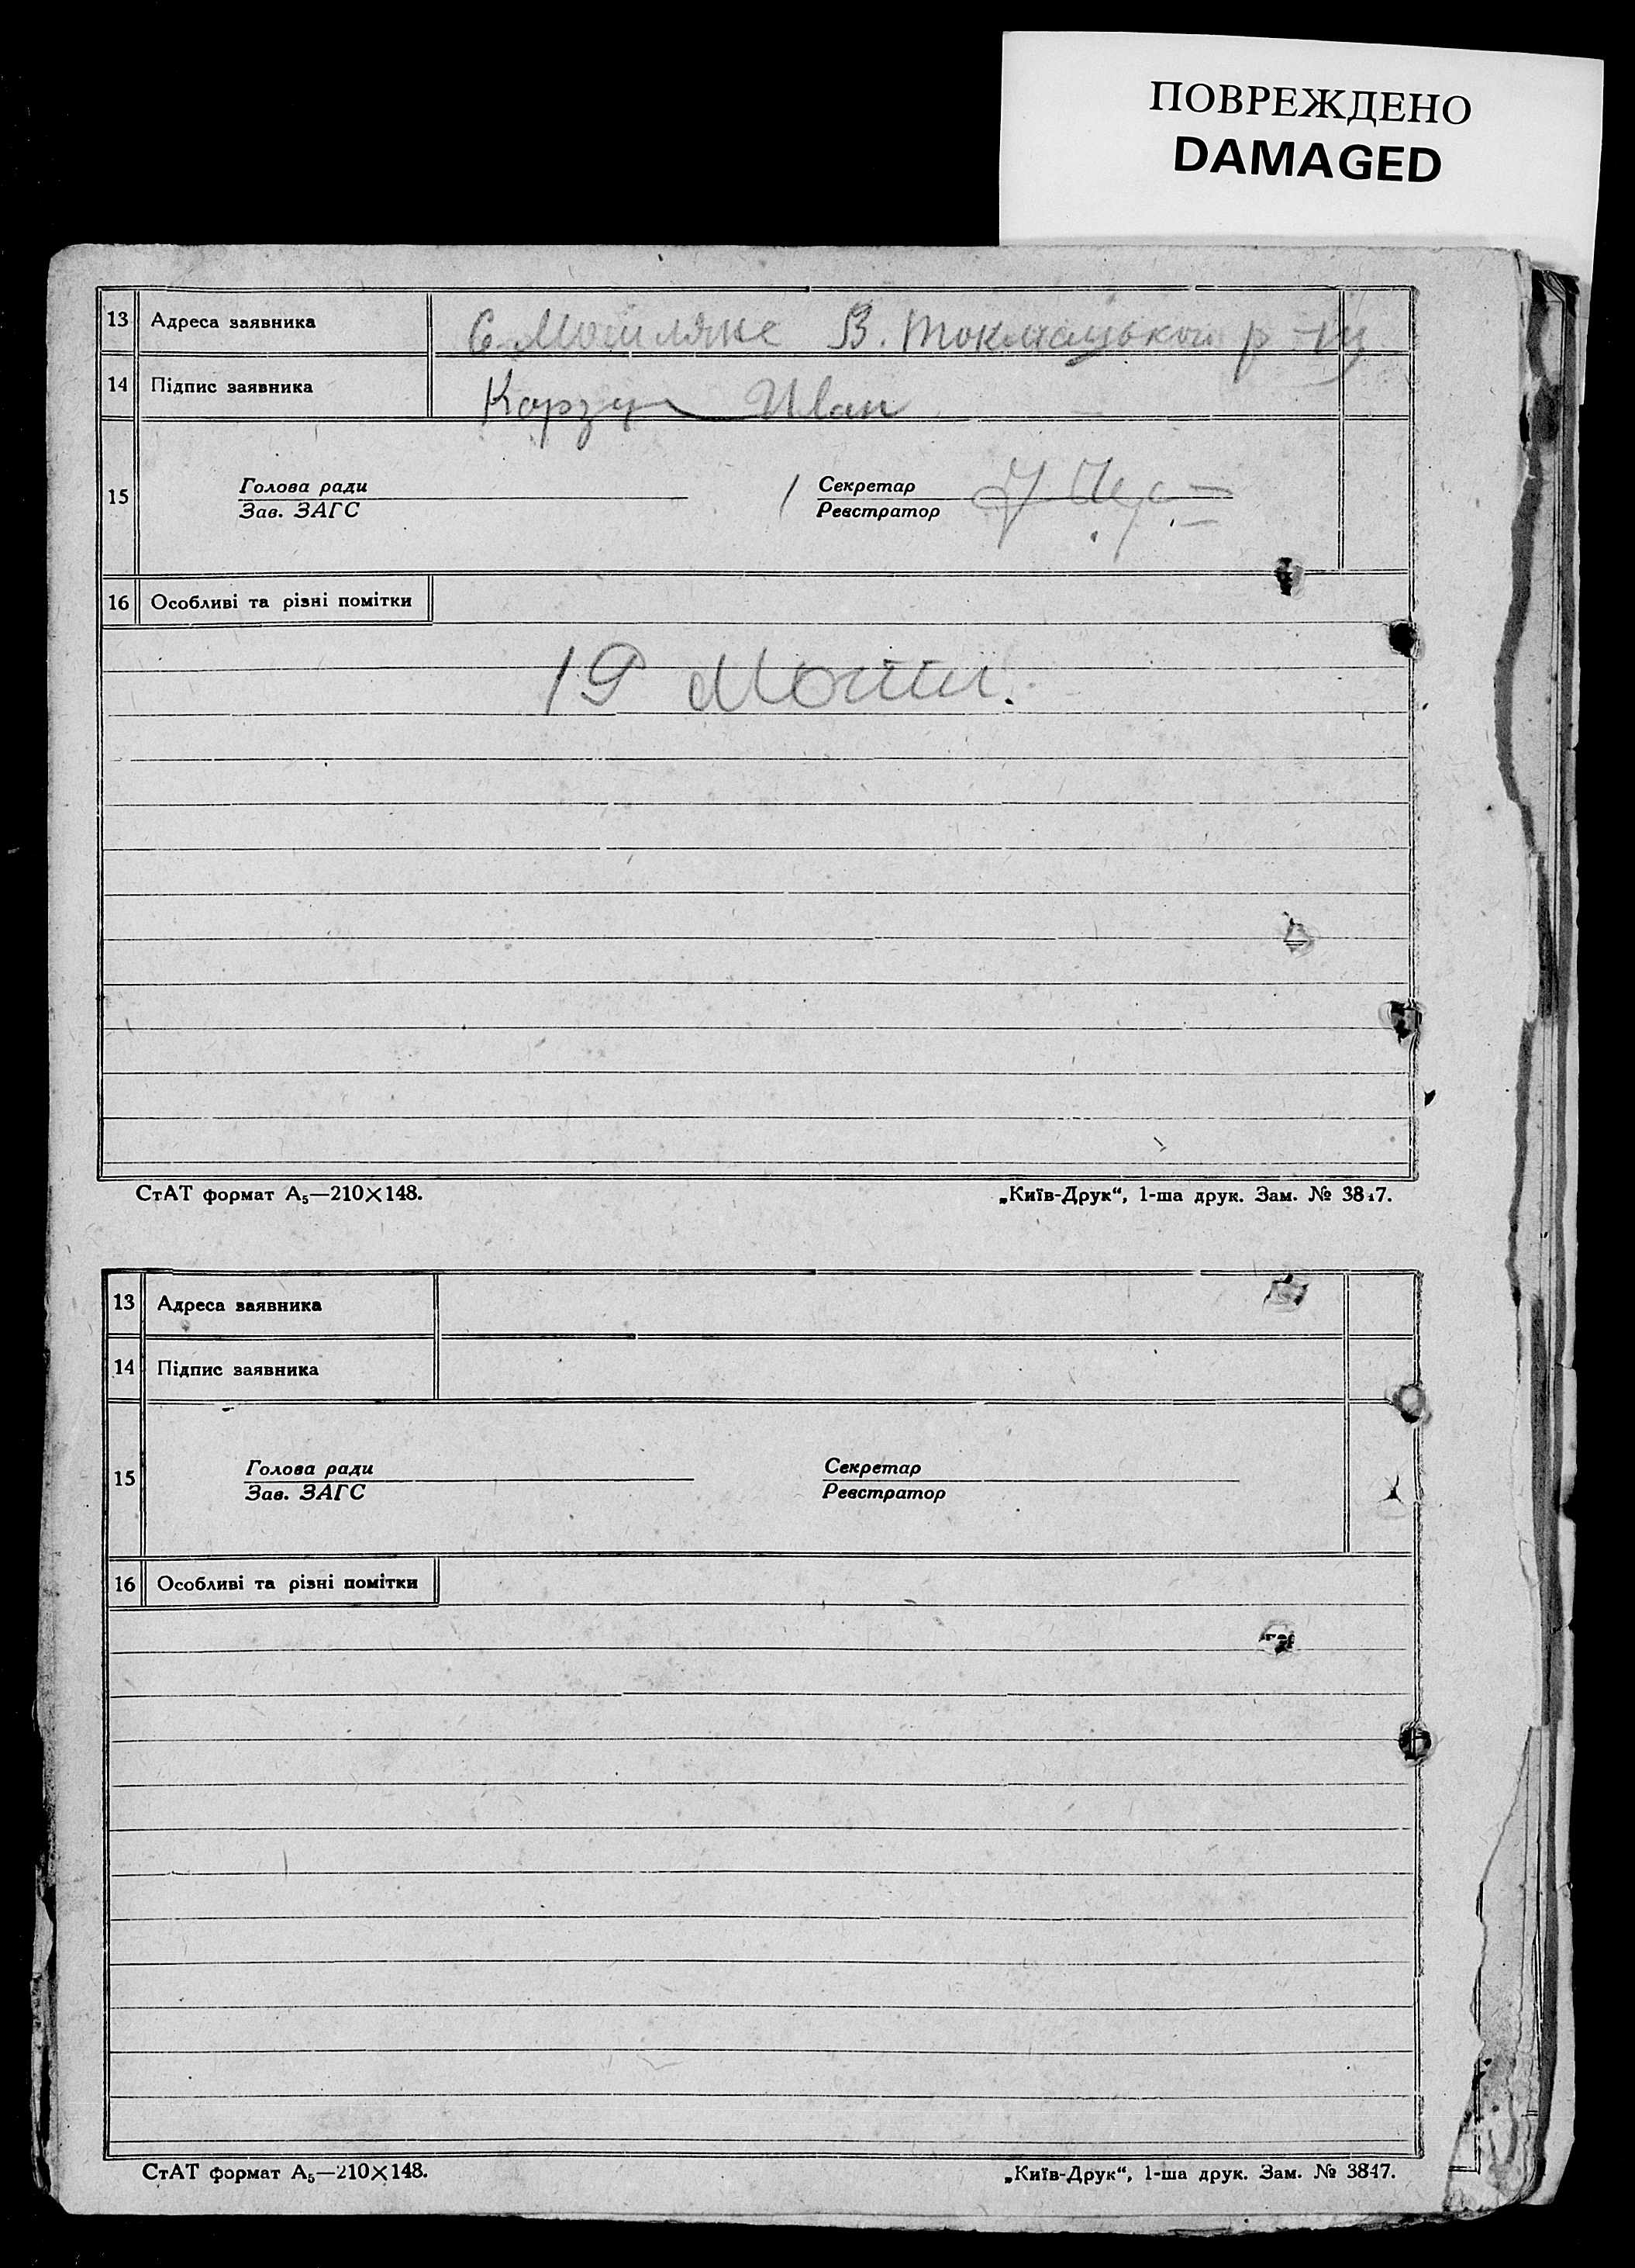 ПОВРЕЖДЕНО
DAMAGED
13 Адреса заявника В. Токмацького р-ну
14 Підпис заявника Корзун Иван
15
Голова ради Секретар
Зав. ЗАГС Реєстратор
16 Особливі та різні помітки
19
СтАТ формат А5—210×148. „Київ-Друк“, 1-ша друк. Зам. № 3847.
13 Адреса заявника
14 Підпис заявника
15
Голова ради Секретар
Зав. ЗАГС Реєстратор
16 Особливі та різні помітки
СтАТ формат А5—210×148. „Київ-Друк“, 1-ша друк. Зам. № 3847.